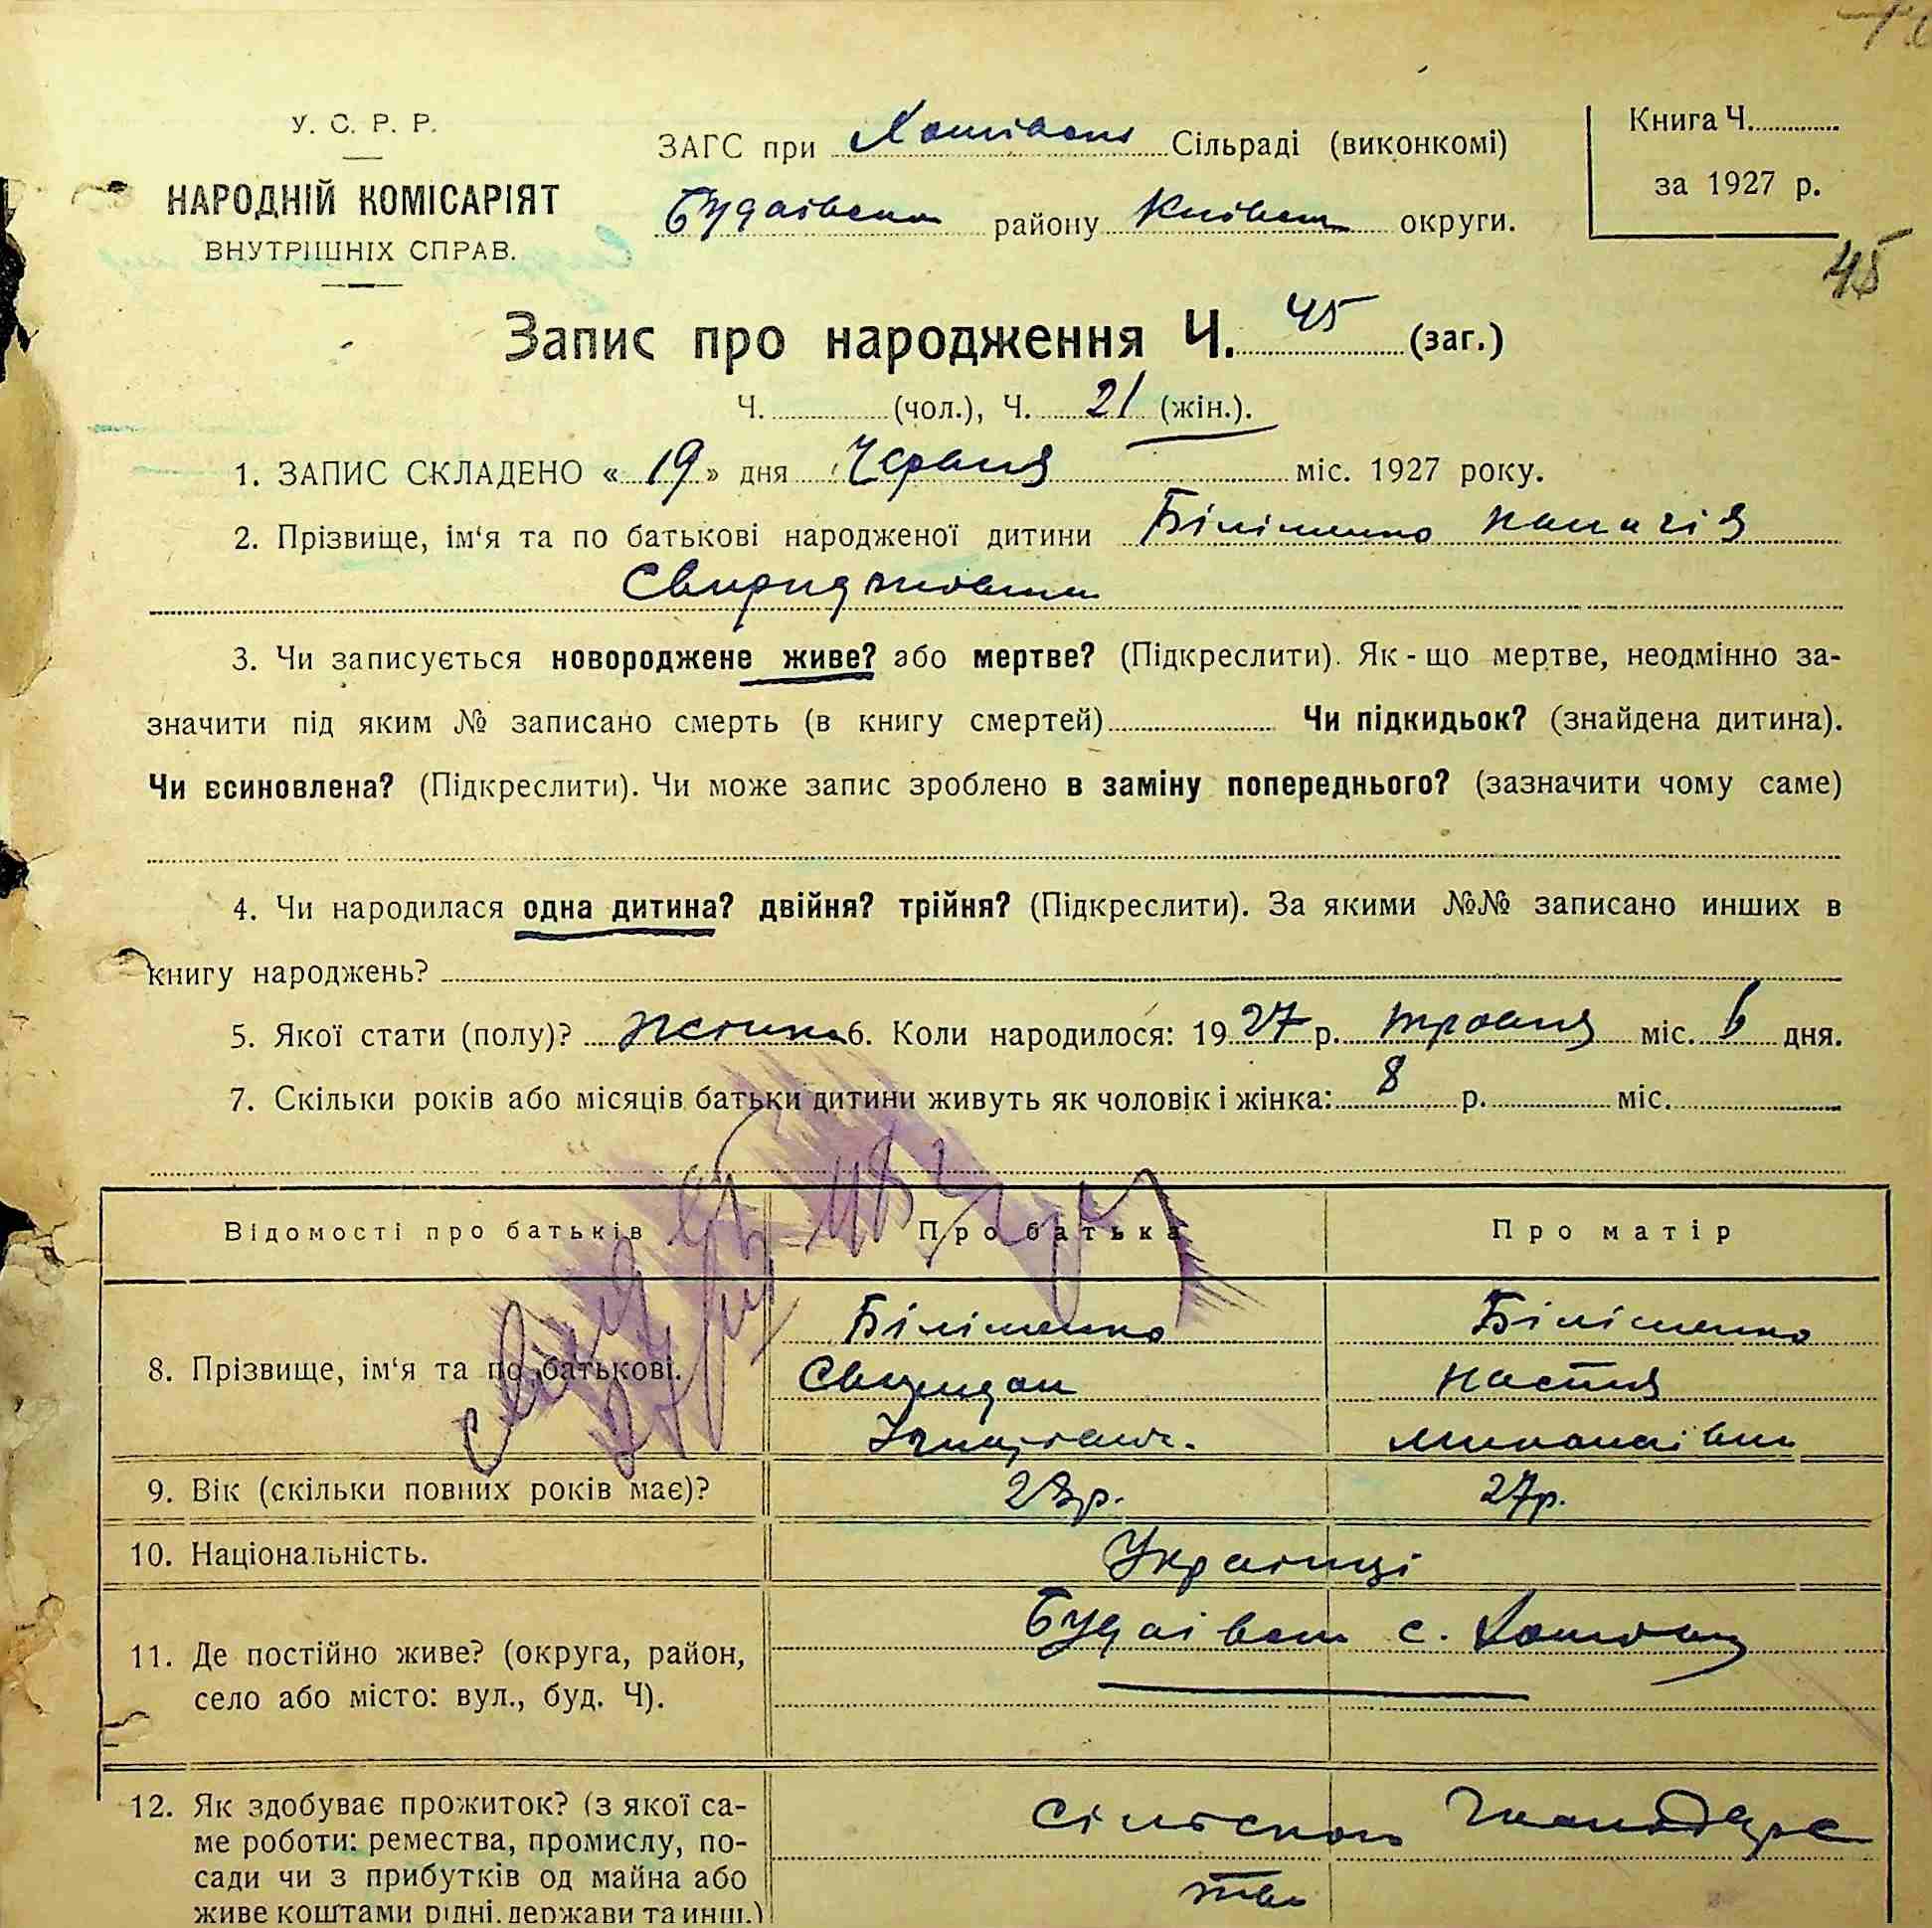 У. С. Р. Р.
НАРОДНІЙ КОМІСАРІЯТ
ВНУТРІШНІХ СПРАВ.
ЗАГС при Хотівськ Сільраді (виконкомі)
Будаівськ району Київськ округи.
Книга Ч.
за 1927 р.
45
Запис про народження Ч. 45 (заг.)
Ч. (чол.), Ч. 21 (жін.).
1. ЗАПИС СКЛАДЕНО « 19 » дня Червня міс. 1927 року.
2. Прізвище, ім'я та по батькові народженої дитини
3. Чи записується новороджене живе? або мертве? (Підкреслити). Як-що мертве, неодмінно за-
значити під яким № записано смерть (в книгу смертей) Чи підкидьок? (знайдена дитина).
Чи всиновлена? (Підкреслити). Чи може запис зроблено в заміну попереднього? (зазначити чому саме)
4. Чи народилася одна дитина? двійня? трійня? (Підкреслити). За якими №№ записано инших в
книгу народжень?
5. Якої стати (полу)? 6. Коли народилося: 1927 р. травня міс. 6 дня.
7. Скільки років або місяців батьки дитини живуть як чоловік і жінка: 8 р. міс.
Відомості про батьків Про батька Про матір
8. Прізвище, ім'я та по батькові.
Свиридон Настя
9. Вік (скільки повних років має)? 28р. 27р.
10. Національність. Українці
11. Де постійно живе? (округа, район,
село або місто: вул., буд. Ч).
Будаівськ с. Хотів
12. Як здобуває прожиток? (з якої са-
ме роботи: ремества, промислу, по-
сади чи з прибутків од майна або
живе коштами рідні, держави та инш.)
сільськом господарс
тво